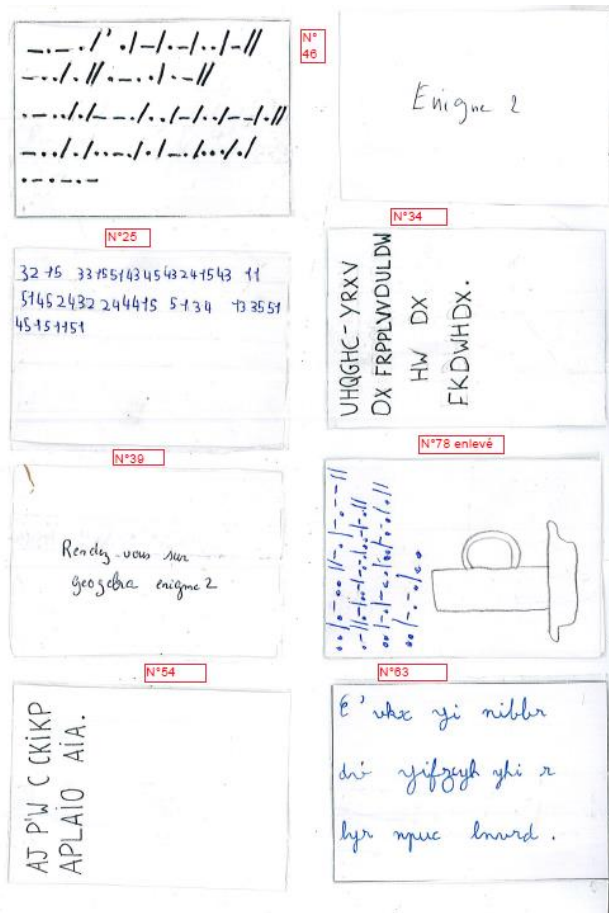 _._./'./_/._/../_//
_.././/._../._//
._.././__./../_/../__/.//
._._._
N°
46
Enigme 2
N°25
32 15 331551434543241543 11
51452432 244415 5134 133551
45151151
N°34
UHQGHC-YRXV
DX FRPPLVVDULDW
HW DX
FKDWHDX.
N°39
Rendez-vous sur
geogebra enigme 2
N°78 enlevé
N°54
AJ P'W C CKiKP
APLAiO AiA.
N°63
yi
r
lyr npuc lnvrd.